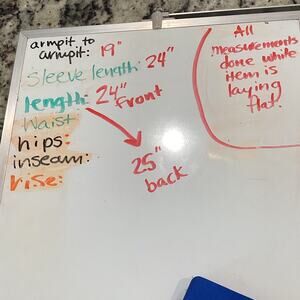 armpit to
armpit: 19"
Sleeve length: 24"
length: 24" front
25"
back
Waist
hips:
inseam:
rise:
All
measurements
done while
item is
laying
flat.